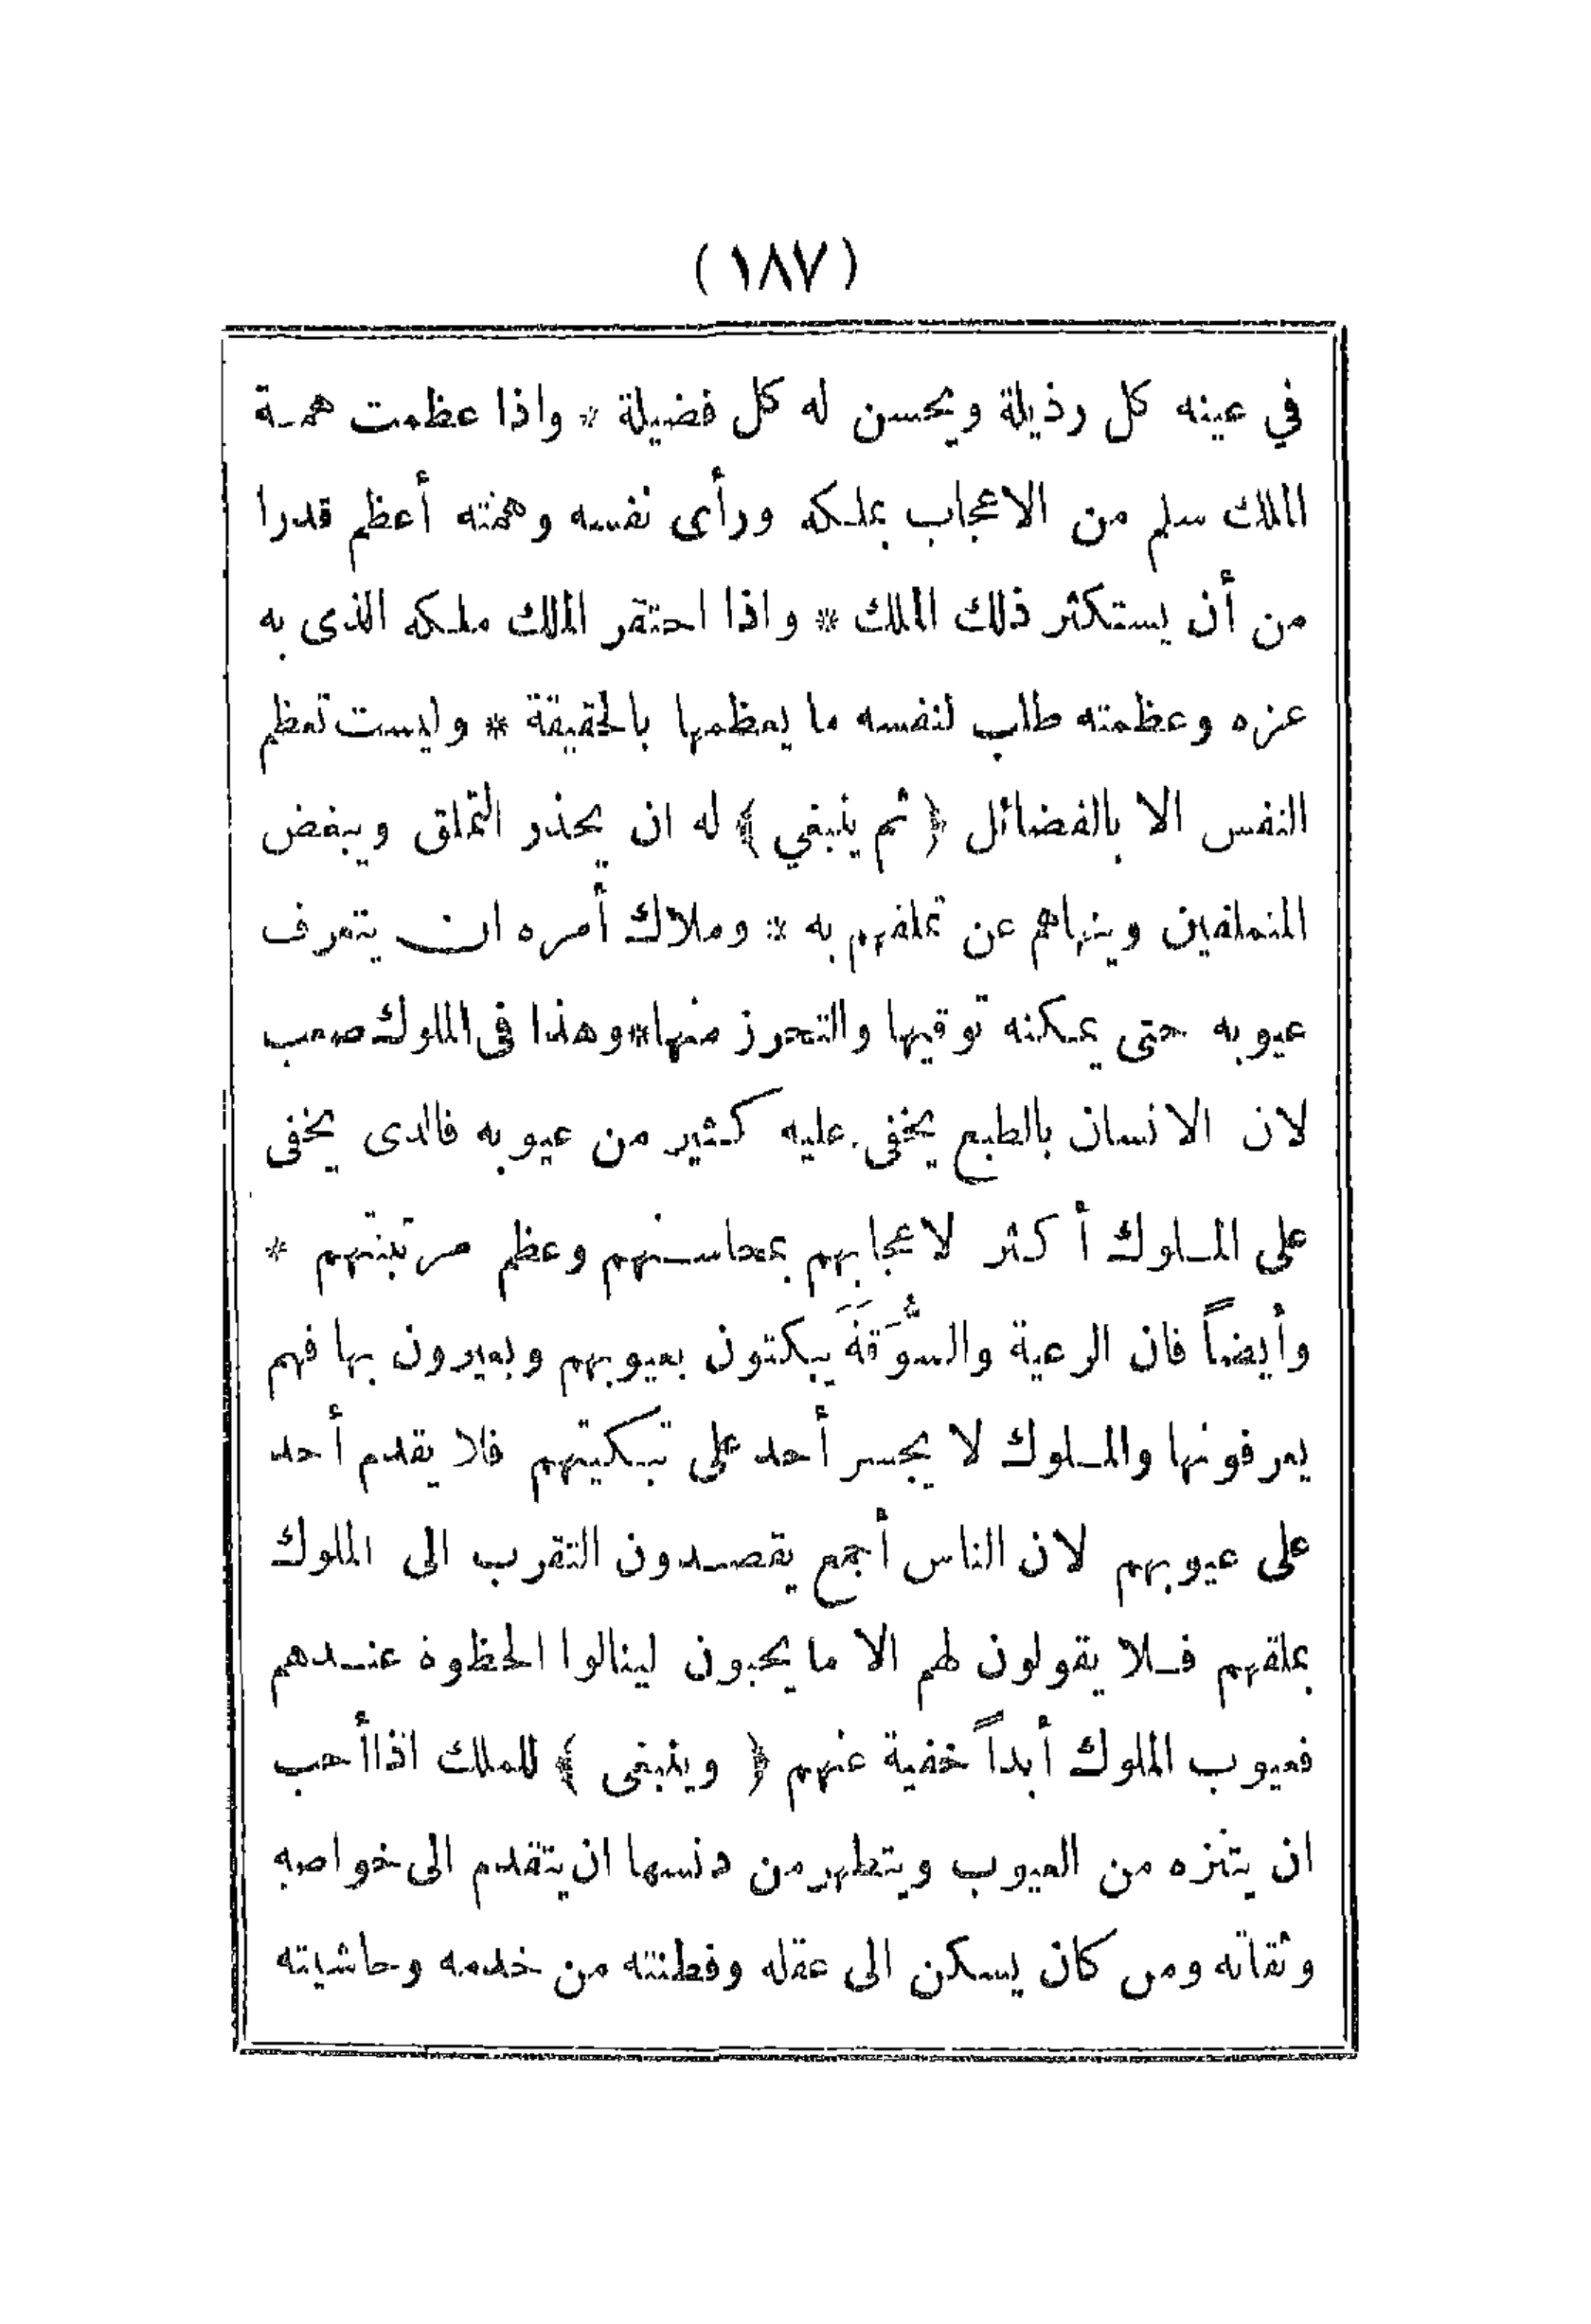 (١٨٧)
في عينه كل رذيلة ويحسن له كل فضيلة * واذا عظمت همة
الملك سلم من الاعجاب بملكه ورأى نفسه وهمته أعظم قدرا
من أن يستكثر ذلك الملك * واذا احتقر الملك ملكه الذى به
عزه وعظمته طلب لنفسه ما يعظمها بالحقيقة * وليست تعظم
النفس الا بالفضائل ﴿ ثم ينبغي ﴾ له ان يحذر التملق ويبغض
المتملقين وينهاهم عن تملقهم به * وملاك أمره ان يتعرف
عيوبه حتى يمكنه توقيها والتحرز منها * وهذا فى الملوك صعب
لان الانسان بالطبع يخفى عليه كثير من عيوبه فالذى يخفى
على الملوك أكثر لاعجابهم بمحاسنهم وعظم مرتبتهم *
وأيضاً فان الرعية والسُّوَقَةَ يبكتون بعيوبهم ويعيرون بها فهم
يعرفونها والملوك لا يجسر أحد على تبكيتهم فلا يقدم أحد
على عيوبهم لان الناس أجمع يقصدون التقرب الى الملوك
بملقهم فلا يقولون لهم الا ما يحبون لينالوا الحظوة عندهم
فعيوب الملوك أبداً خفية عنهم ﴿ وينبغى ﴾ للملك اذا أحب
ان يتنزه من العيوب ويتطهر من دنسها ان يتقدم الى خواصه
وثقاته ومن كان يسكن الى عقله وفطنته من خدمه وحاشيته